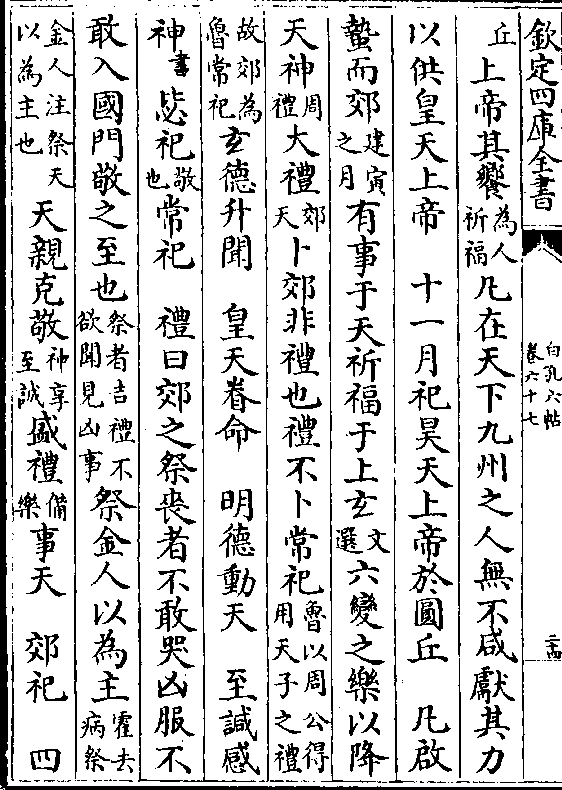 欽定四庫全書
白孔六帖
卷六十七
二十四
丘上帝其饗為人祈福凡在天下九州之人無不咸獻其力
以供皇天上帝　十一月祀昊天上帝於圜丘　凡啟
蟄而郊建寅之月有事于天祈福于上玄文選六變之樂以降
天神周禮大禮郊天卜郊非禮也禮不卜常祀魯以周公得用天子之禮
故郊為魯常祀玄德升聞　皇天眷命　明德動天　至諴感
神書毖祀敬也常祀　禮曰郊之祭喪者不敢哭凶服不
敢入國門敬之至也祭者吉禮不欲聞見凶事祭金人以為主霍去病祭
金人注祭天以為主也天親克敬神享至誠盛禮備樂事天　郊祀　四